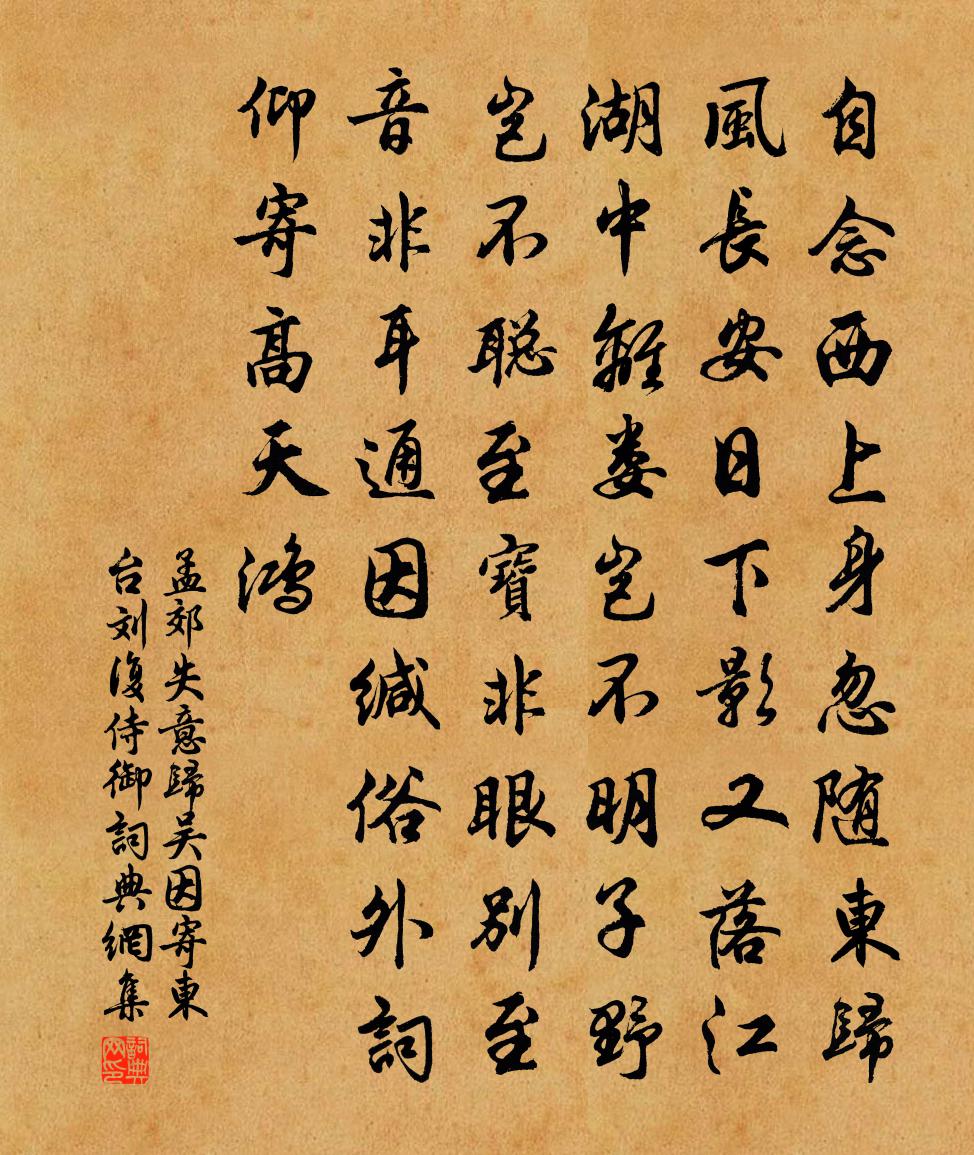 自念西上身忽随東歸
風長安日下影又落江
湖中離婁岂不明子野
岂不聪至寶非眼别至
音非耳通因缄俗外詞
仰寄高天鸿
孟郊失意歸吴因寄東
台刘復侍御詞典網集
詞典网印